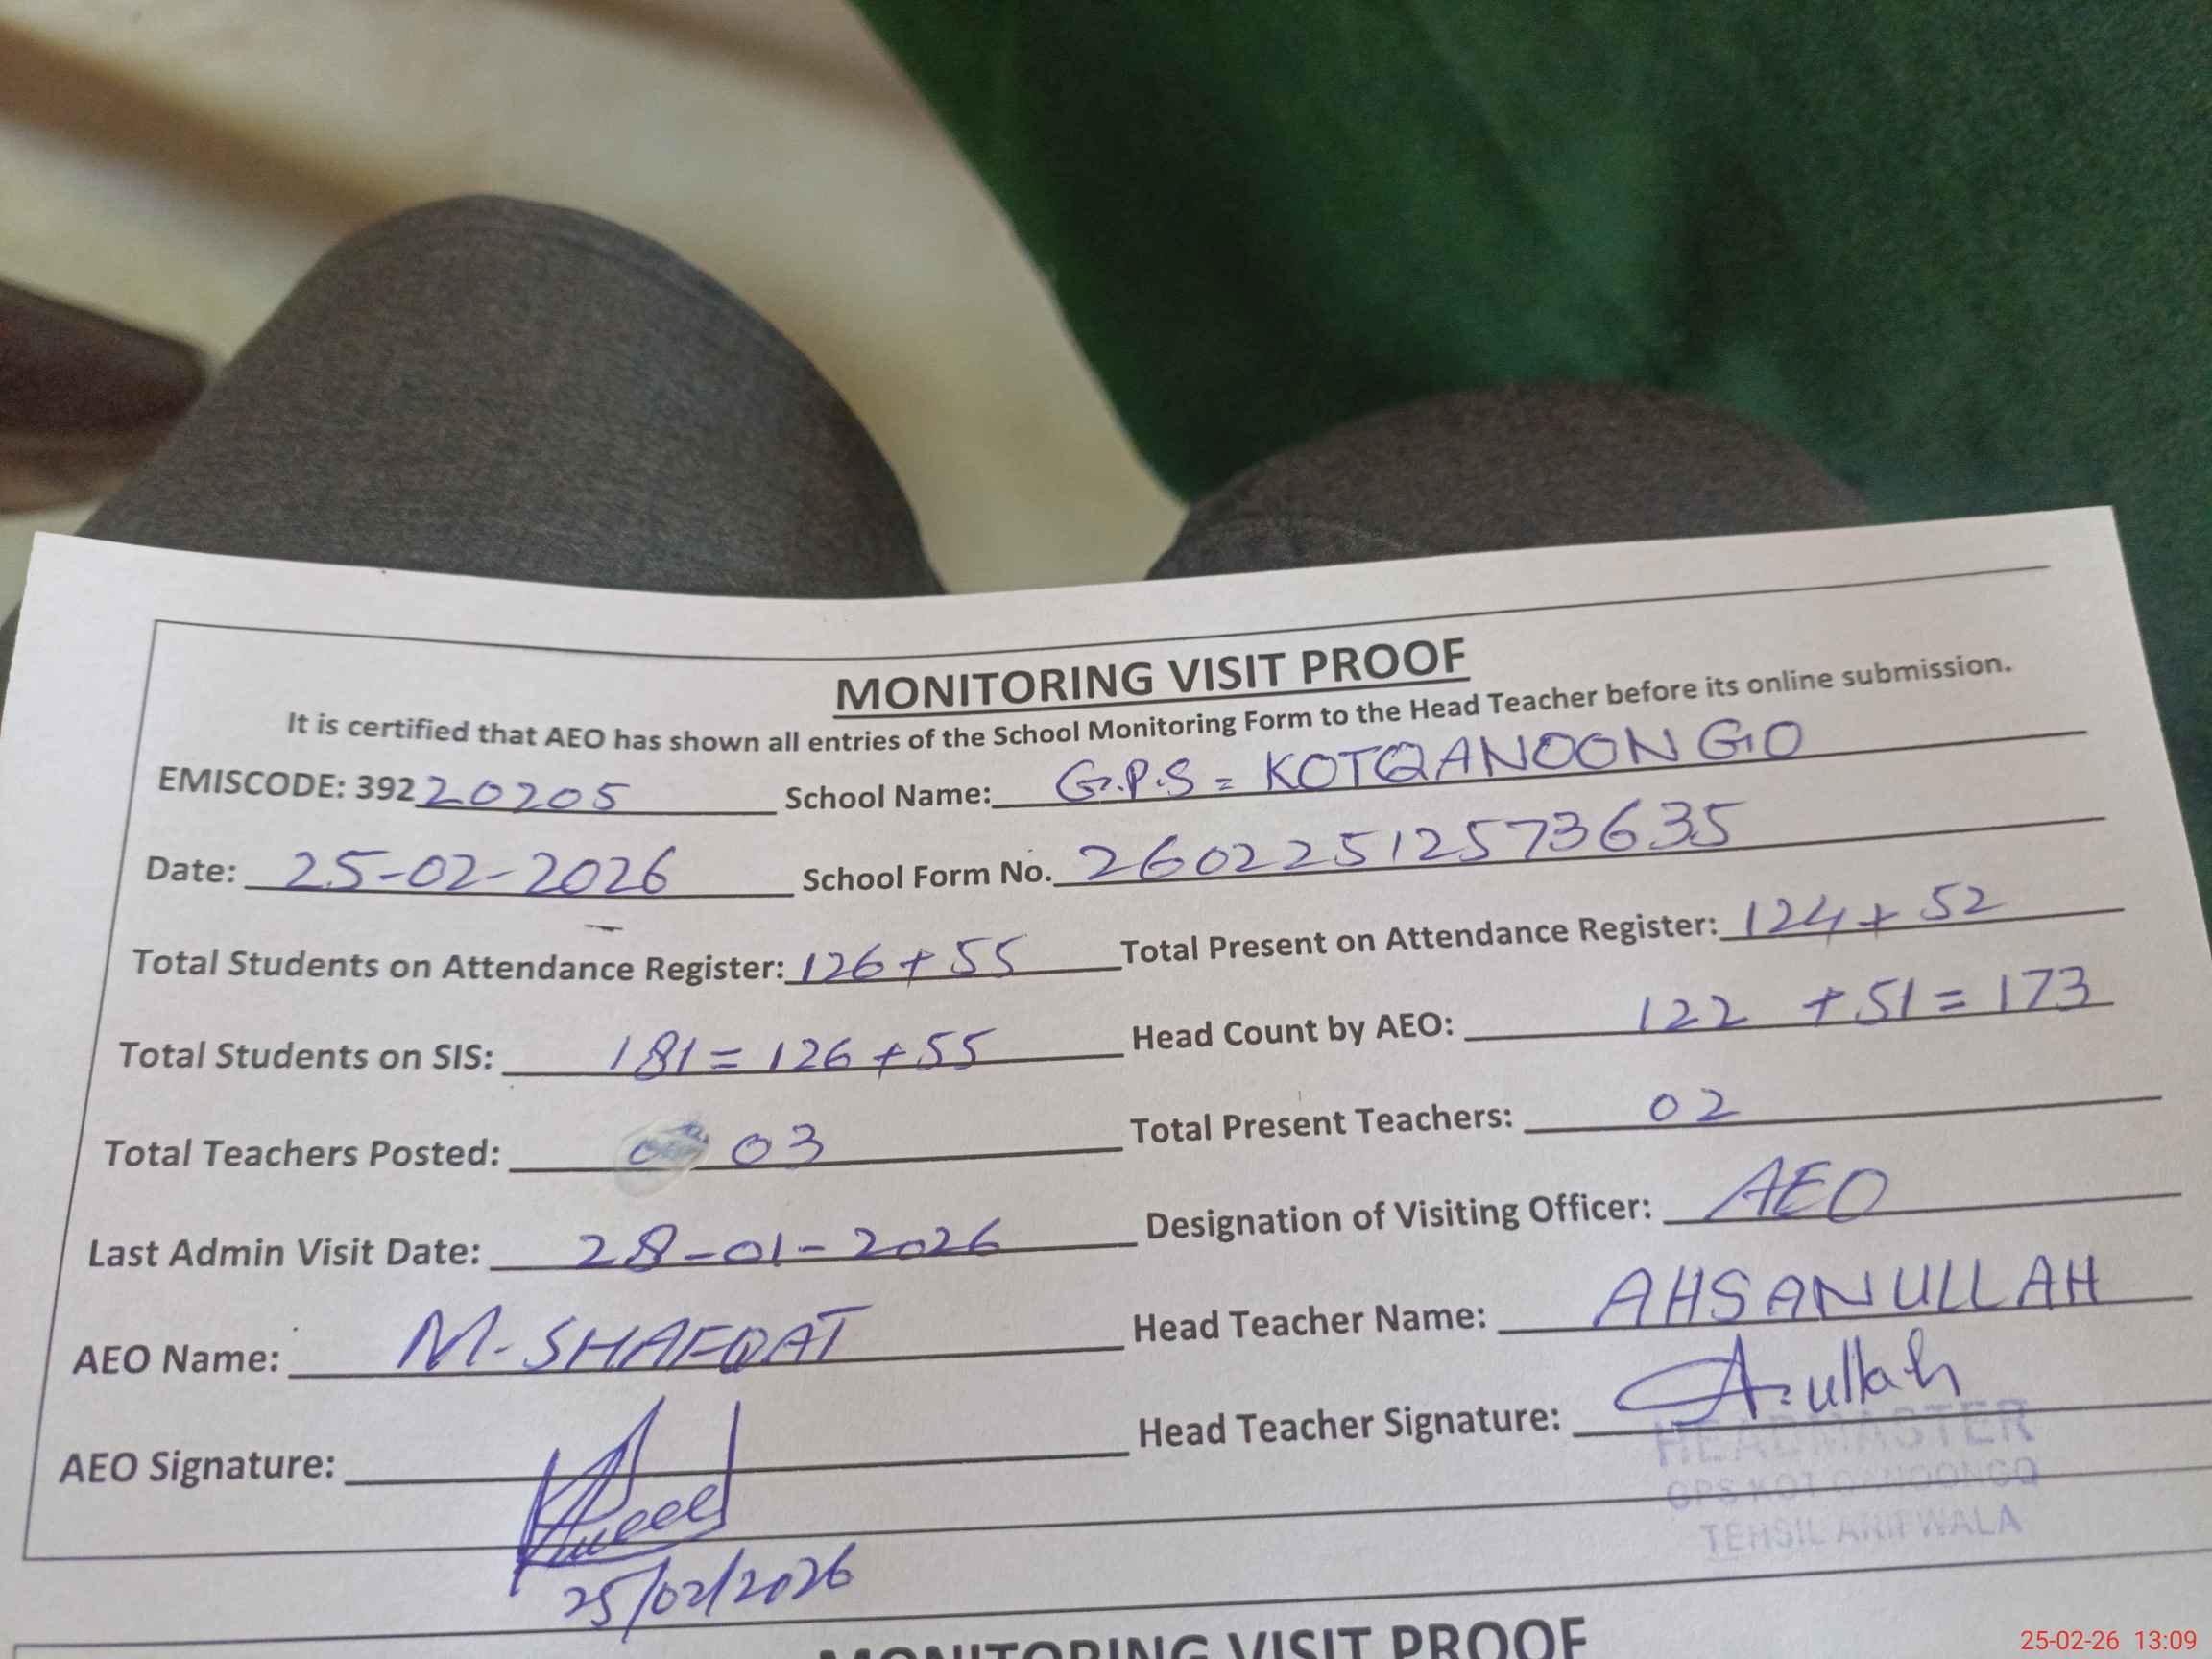 MONITORING VISIT PROOF
It is certified that AEO has shown all entries of the School Monitoring Form to the Head Teacher before its online submission.
EMISCODE: 39220205 School Name: G.P.S = KOTQANOON GO
Date: 25-02-2026 School Form No. 26022512573635
Total Students on Attendance Register: 126+55 Total Present on Attendance Register: 124+52
Total Students on SIS: 181=126+55 Head Count by AEO: 122 +51=173
Total Teachers Posted: 03 Total Present Teachers: 02
Last Admin Visit Date: 28-01-2026 Designation of Visiting Officer: AEO
AEO Name: M-SHAFQAT Head Teacher Name: AHSANULLAH
AEO Signature: Head Teacher Signature: A.ullah
HEADMASTER
GPS KOT QANOONGO
TEHSIL ARIFWALA
25/02/2026
MONITORING VISIT PROOF
25-02-26 13:09